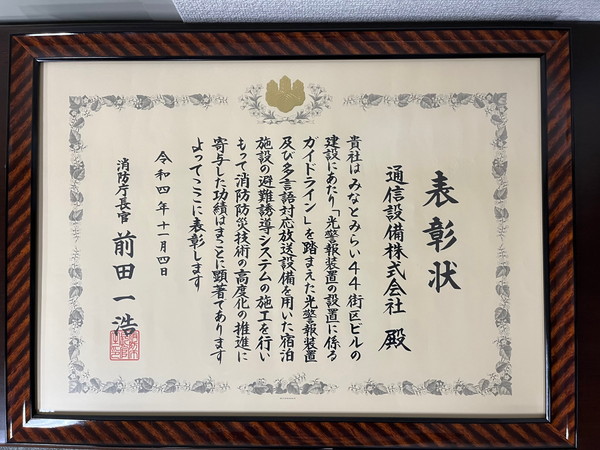 表彰状
通信設備株式会社 殿
貴社はみなとみらい44街区ビルの
建設にあたり「光警報装置の設置に係る
ガイドライン」を踏まえた光警報装置
及び多言語対応放送設備を用いた宿泊
施設の避難誘導システムの施工を行い
もって消防防災技術の高度化の推進に
寄与した功績はまことに顕著であります
よってここに表彰します
令和四年十一月四日
消防庁長官 前田一浩